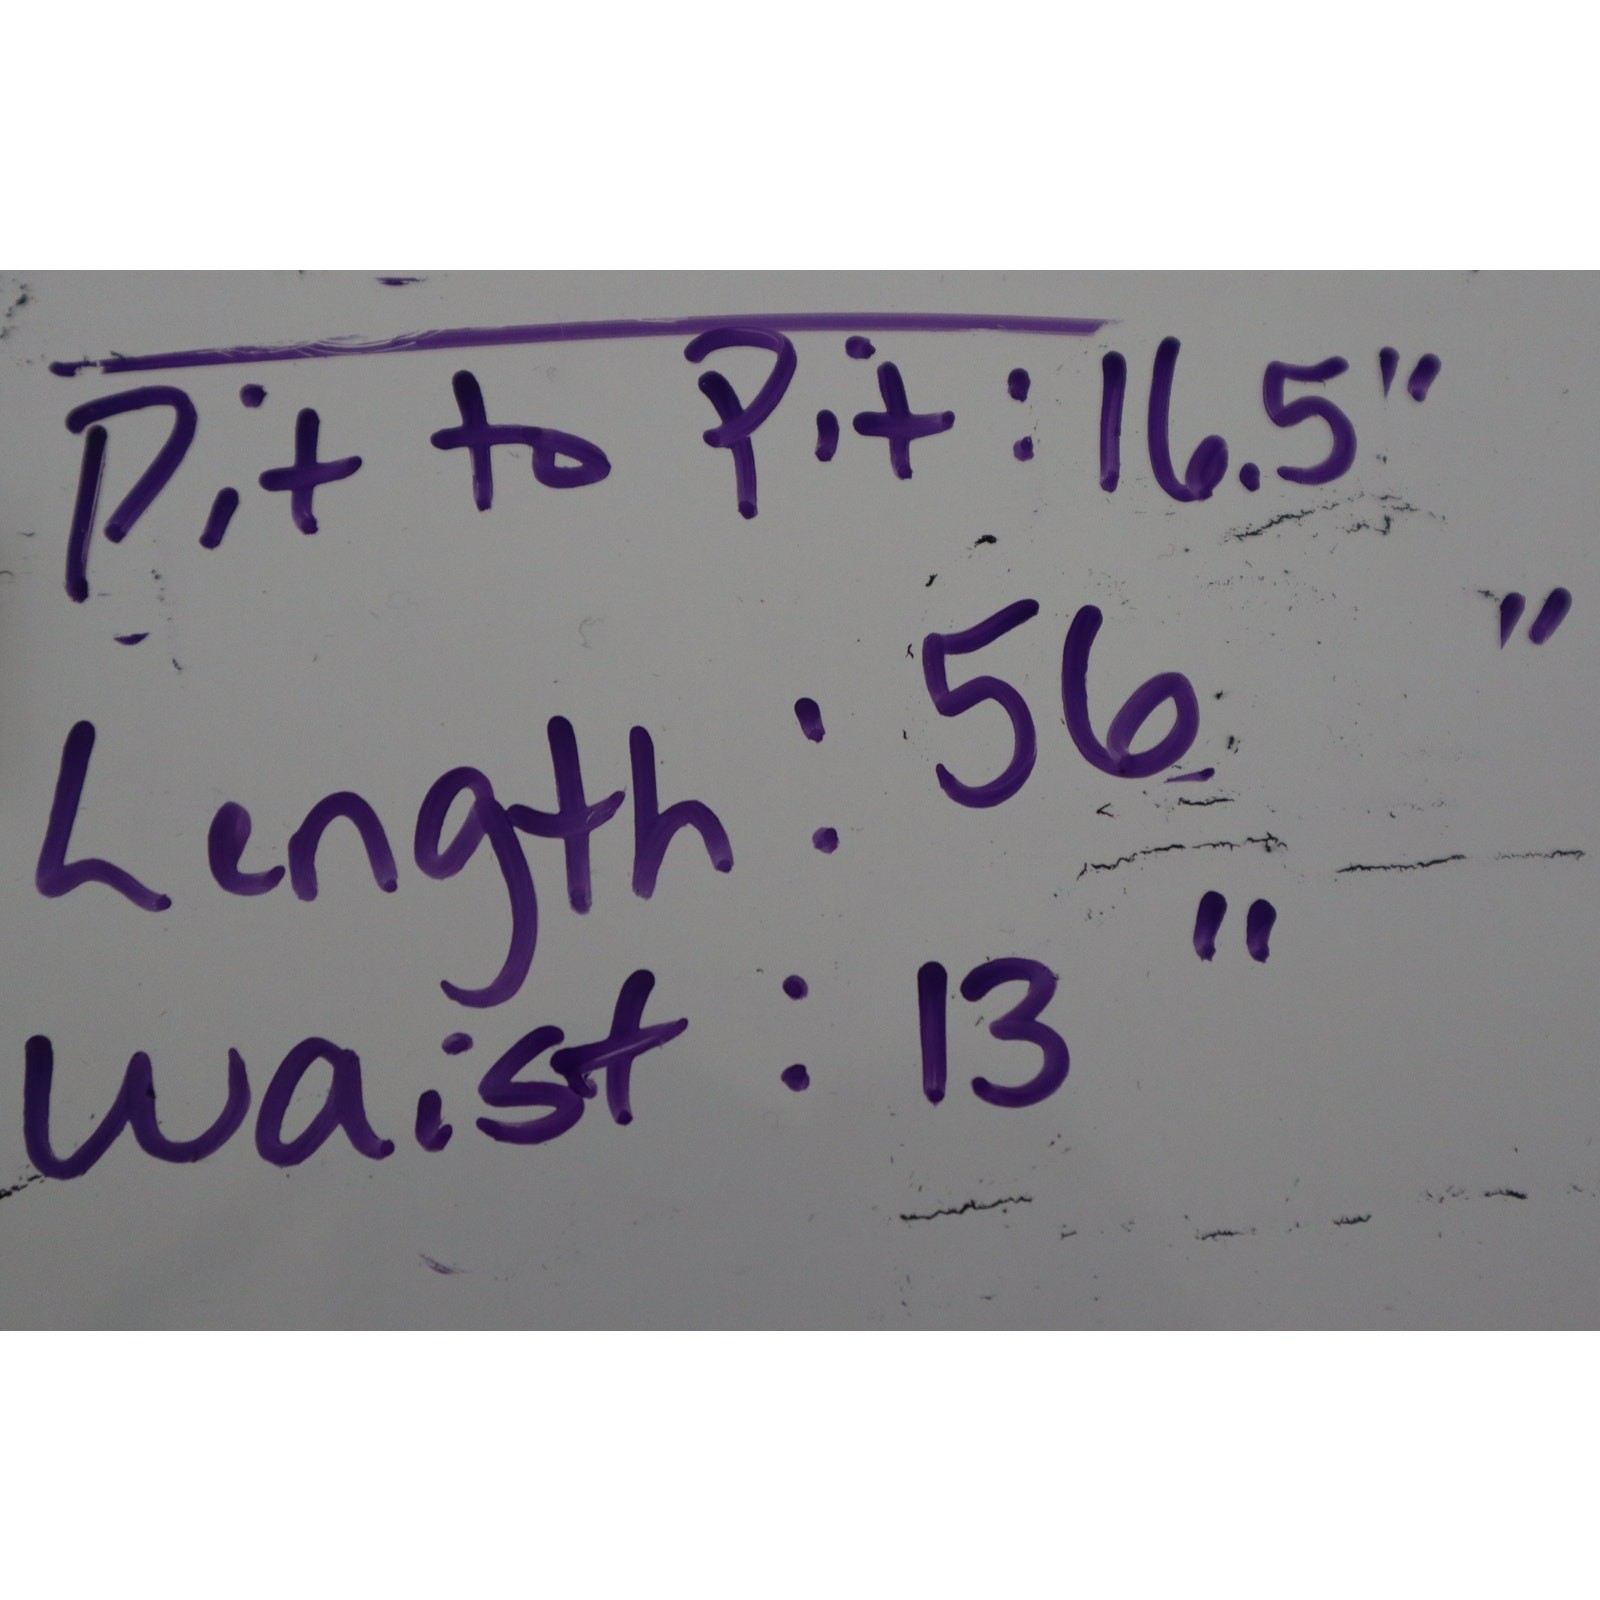 Pit to Pit : 16.5"
Length : 56 "
Waist : 13 "